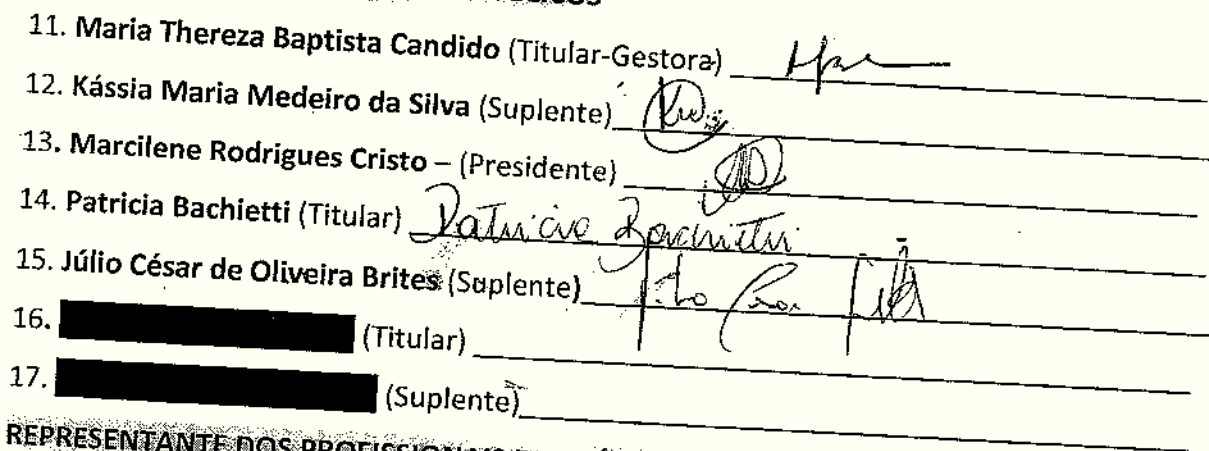 11. Maria Thereza Baptista Candido (Titular-Gestora)
12. Kássia Maria Medeiro da Silva (Suplente)
13. Marcilene Rodrigues Cristo – (Presidente)
14. Patricia Bachietti (Titular) Patricia Bachietti
15. Júlio César de Oliveira Brites (Suplente)
16. (Titular)
17. (Suplente)
REPRESENTANTE DOS PROFISSIONAIS